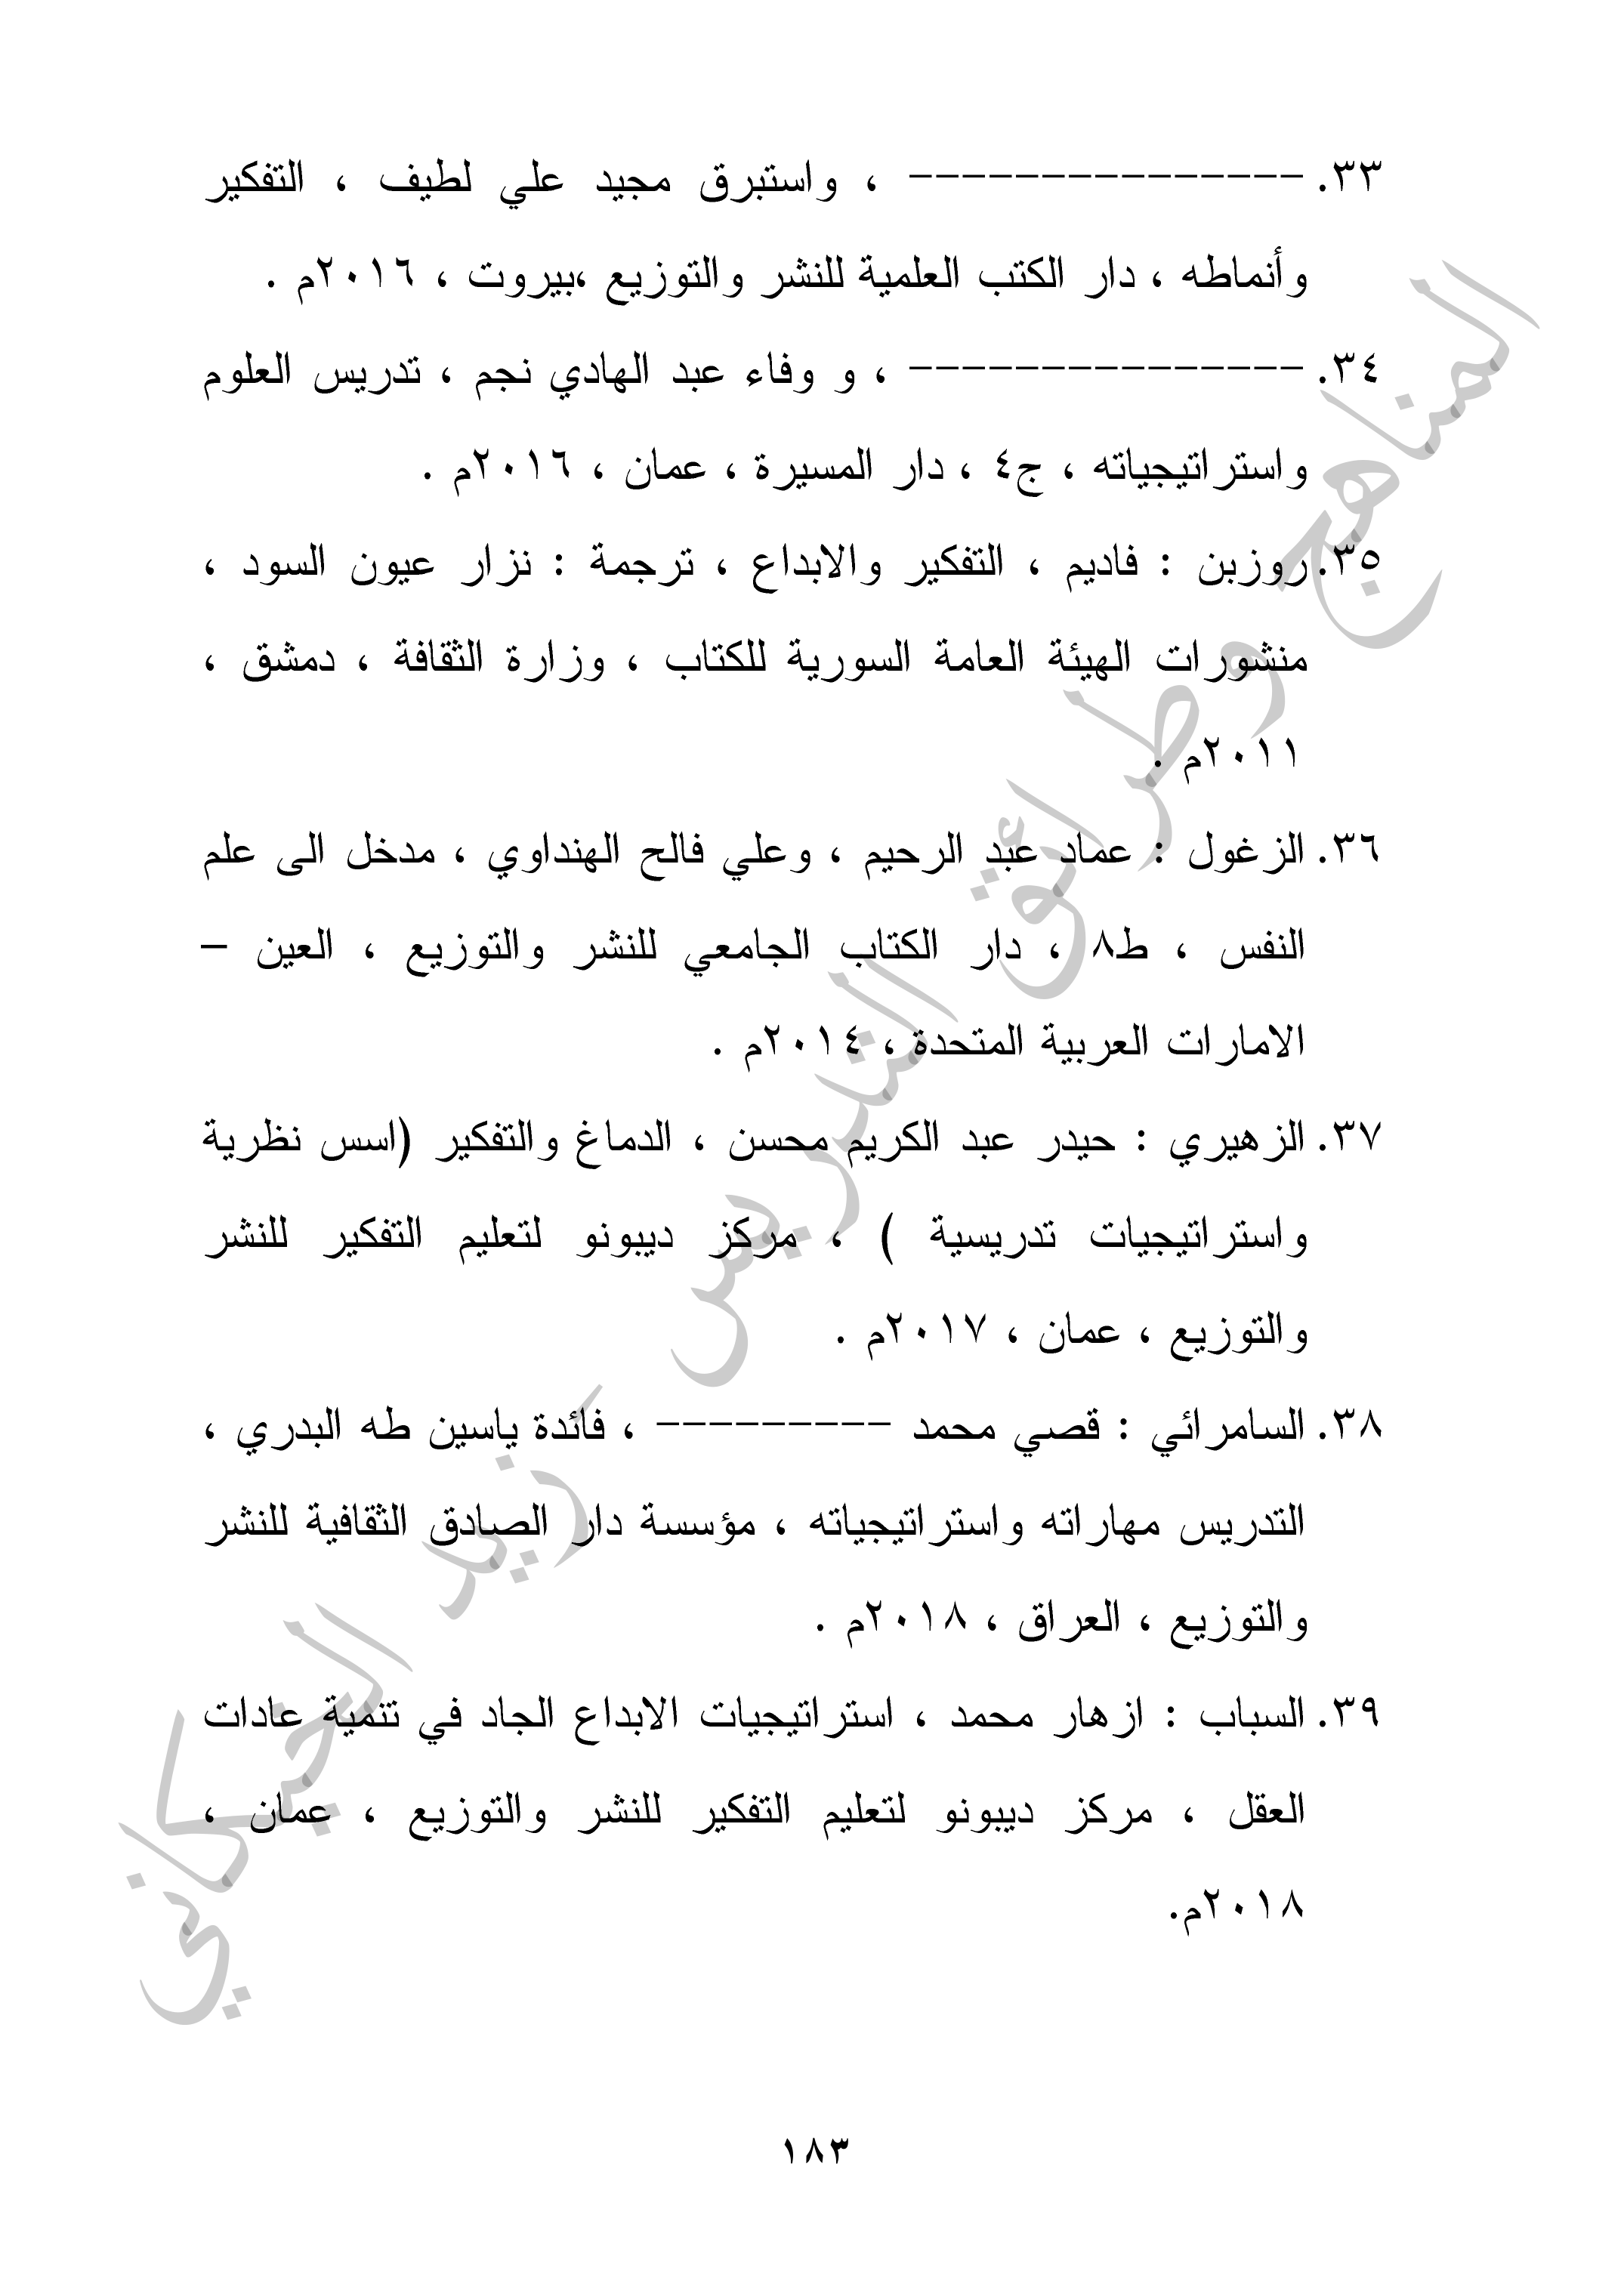 ٣٣. --------------- ، واستبرق مجيد علي لطيف ، التفكير
وأنماطه ، دار الكتب العلمية للنشر والتوزيع ،بيروت ، ٢٠١٦م .
٣٤. --------------- ، و وفاء عبد الهادي نجم ، تدريس العلوم
واستراتيجياته ، ج٤ ، دار المسيرة ، عمان ، ٢٠١٦م .
٣٥. روزبن : فاديم ، التفكير والابداع ، ترجمة : نزار عيون السود ،
منشورات الهيئة العامة السورية للكتاب ، وزارة الثقافة ، دمشق ،
٢٠١١م .
٣٦. الزغول : عماد عبد الرحيم ، وعلي فالح الهنداوي ، مدخل الى علم
النفس ، ط٨ ، دار الكتاب الجامعي للنشر والتوزيع ، العين –
الامارات العربية المتحدة ، ٢٠١٤م .
٣٧. الزهيري : حيدر عبد الكريم محسن ، الدماغ والتفكير (اسس نظرية
واستراتيجيات تدريسية ) ، مركز ديبونو لتعليم التفكير للنشر
والتوزيع ، عمان ، ٢٠١٧م .
٣٨. السامرائي : قصي محمد --------- ، فائدة ياسين طه البدري ،
التدريس مهاراته واستراتيجياته ، مؤسسة دار الصادق الثقافية للنشر
والتوزيع ، العراق ، ٢٠١٨م .
٣٩. السباب : ازهار محمد ، استراتيجيات الابداع الجاد في تنمية عادات
العقل ، مركز ديبونو لتعليم التفكير للنشر والتوزيع ، عمان ،
٢٠١٨م.
المناهج وطرائق التدريس _ زيد الخيكاني
١٨٣